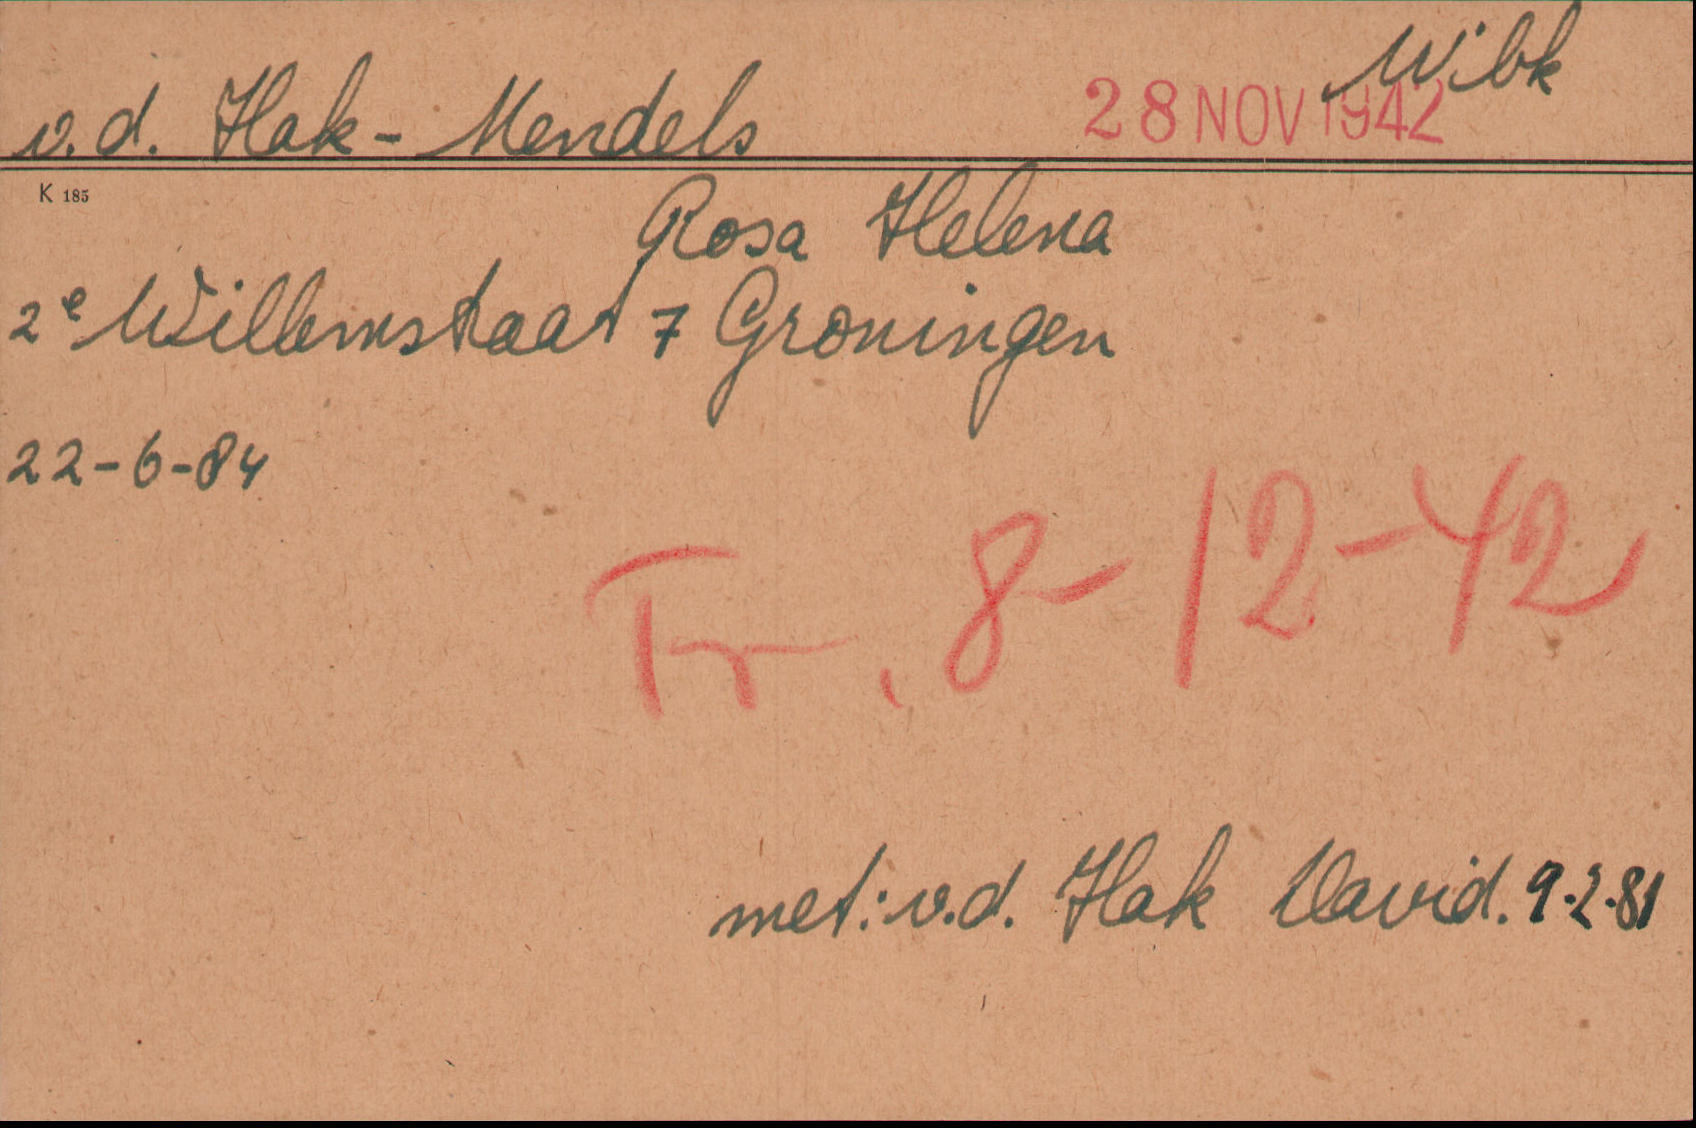 Wibk
v.d. Hak - Mendels 28 NOV 1942
K 185
Rosa Helena
2e Willemstaat 7 Groningen
22-6-84
Tr. 8-12-42
met: v.d. Hak David. 9-2-81